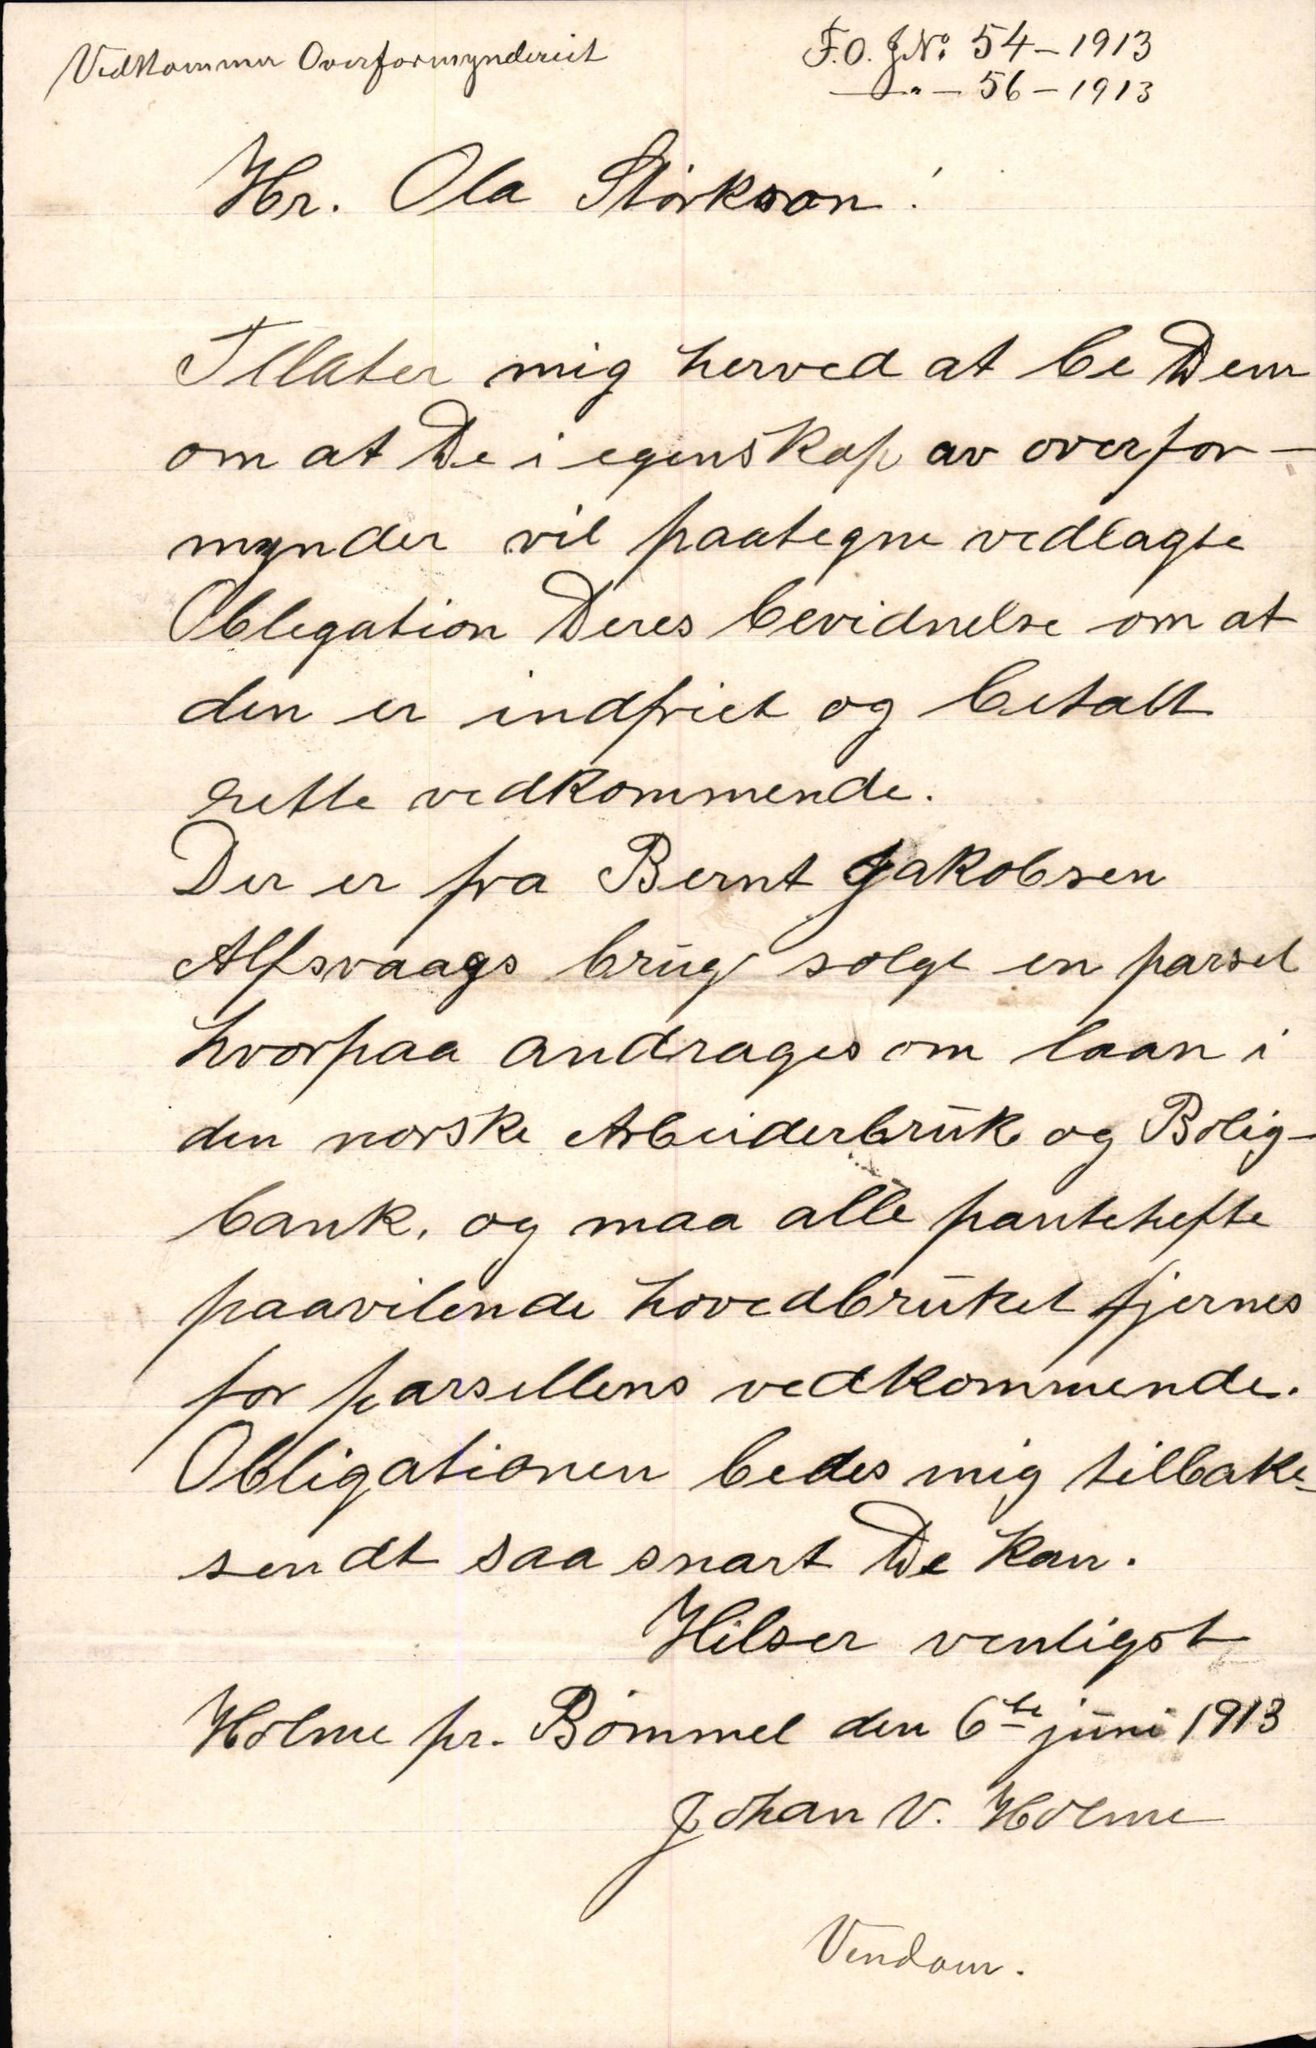 Vedkommer Overformynderiet
F.O. JNo. 54 – 1913
— „ — 56 – 1913
Hr. Ola Størkson!
Tillater mig herved at be Dem
om at De i egenskap av overfor-
mynder vil paategne vedlagte
Oblegation Deres bevidnelse om at
den er indfriet og betalt
rette vedkommende.
Der er fra Bernt Jakobsen
Alfsvaags brug solgt en parsel
hvorpaa andrages om laan i
den norske Arbeiderbruk og Bolig-
bank. og maa alle pantehefte
paavilende hovedbruket fjernes
for parsellens vedkommende.
Obligationen bedes mig tilbake-
sendt saa snart De kan.
Hilser venligst
Holme pr. Bømmel den 6te juni 1913
Johan V. Holme
Vendom.